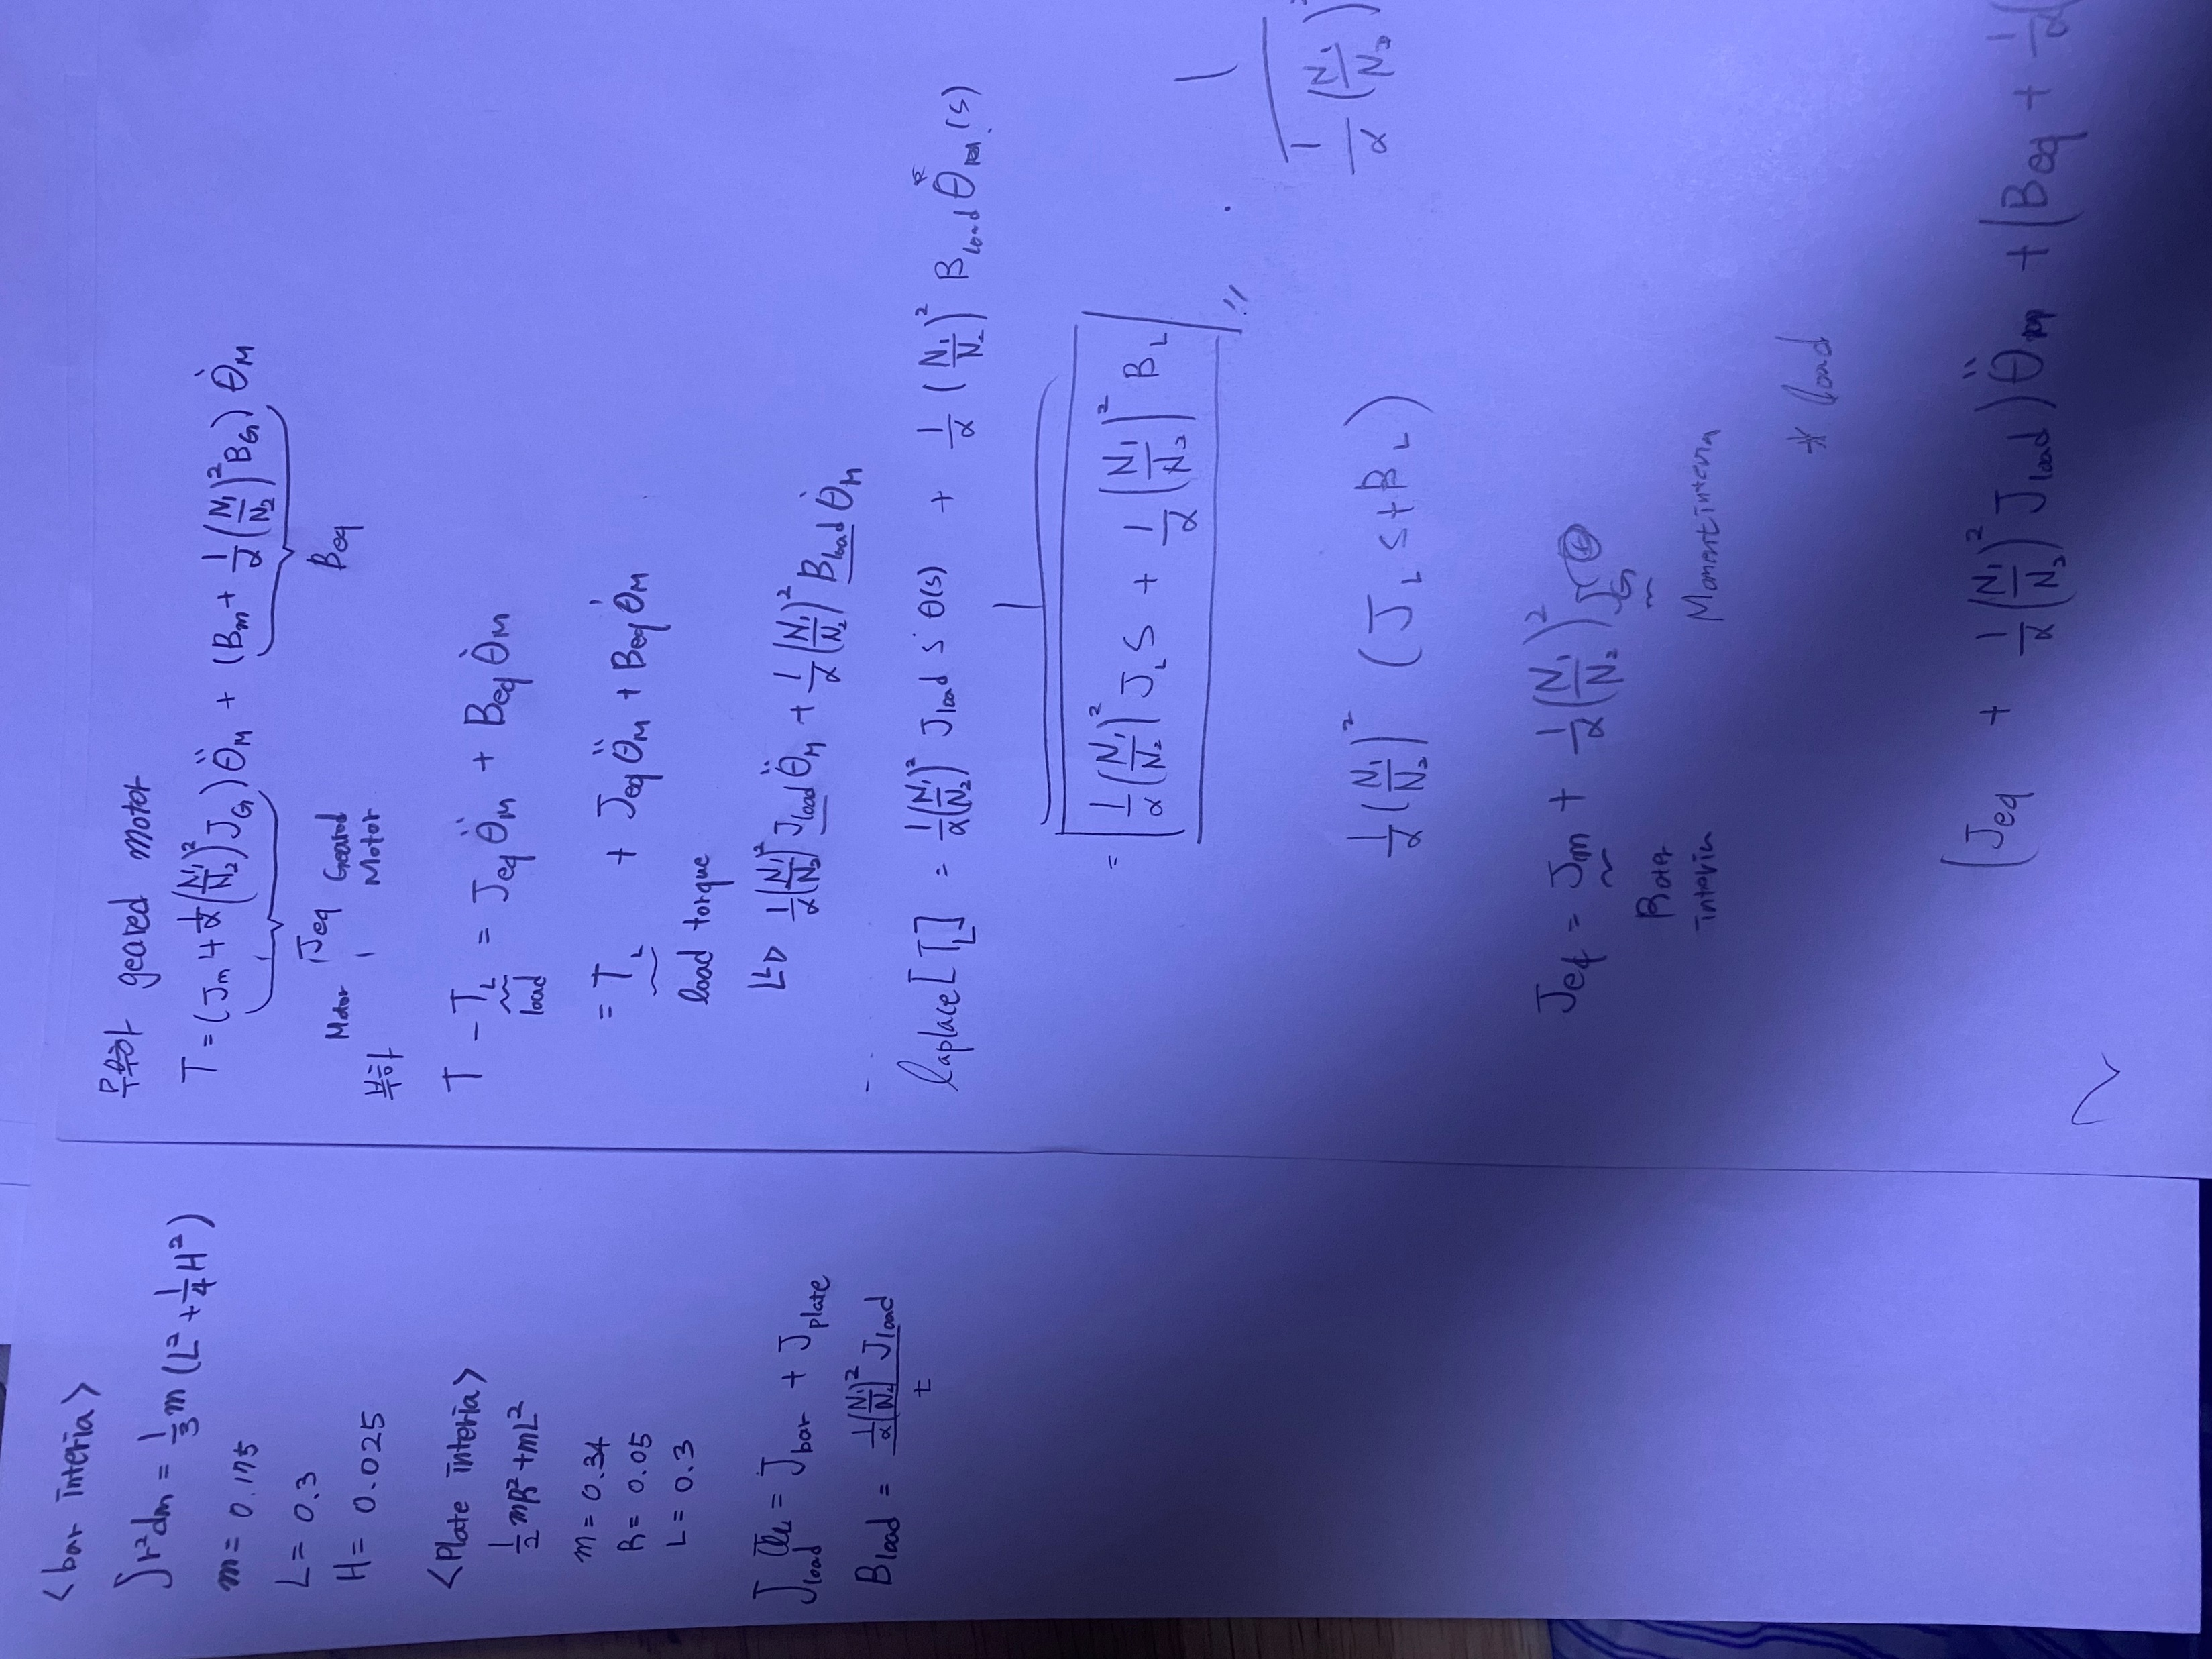 <bar interia>
∫r²dm = 1/3 m (L² + 1/4 H²)
m = 0.175
L = 0.3
H = 0.025
<Plate interia>
1/2 mR² + mL²
m = 0.34
R = 0.05
L = 0.3
J load = J bar + J plate
B load = 1/α (N₁/N₂)² J load / t
무부하 geared motor
T = (Jm + 1/α (N₁/N₂)² J_G) θ̈_M + (Bm + 1/α (N₁/N₂)² B_G) θ̇_M
Jeq Beq
Motor, Geared Motor
부하
T - T_L = Jeq θ̈_M + Beq θ̇_M
load
= T_L + Jeq θ̈_M + Beq θ̇_M
load torque
1/α (N₁/N₂)² J load θ̈_M + 1/α (N₁/N₂)² B load θ̇_M
Laplace[T_L] = 1/α (N₁/N₂)² J load s θ(s) + 1/α (N₁/N₂)² B load θ (s)
1
= 1/α (N₁/N₂)² J_L s + 1/α (N₁/N₂)² B_L
1
1/α (N₁/N₂)
1/α (N₁/N₂)² (J_L s + B_L)
Jeq = Jm + 1/α (N₁/N₂)² J_G
interia Moment interia
* load
(Jeq + 1/α (N₁/N₂)² J load) θ̈m + (Beq + 1/α (